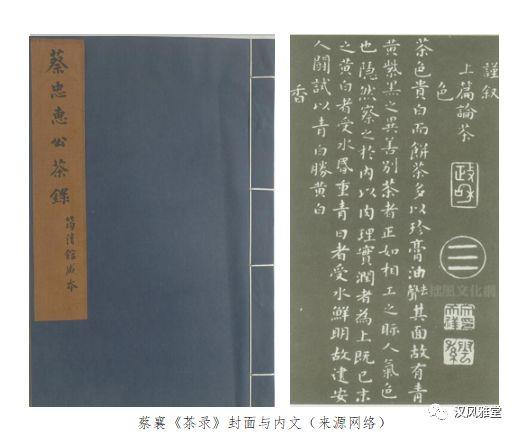 蔡忠惠公茶錄
筠清館
謹叙
上篇論茶
色
茶色貴白而餅茶多以珍膏油去聲其面故有青
黃紫黑之異善別茶者正如相工之眎人氣色
也隱然察之於內以肉理實潤者為上既已末
之黃白者受水昏重青白者受水鮮明故建安
人鬬試以青白勝黃白
香
政和
拙風文化網
蔡襄《茶录》封面与内文（来源网络）
汉风雅堂